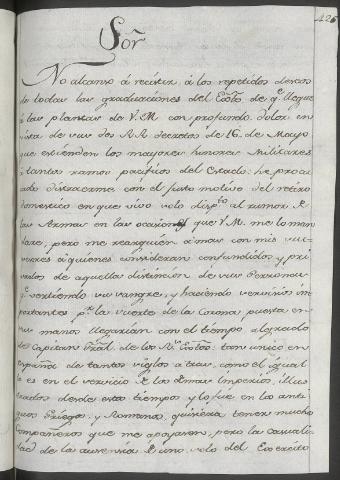 426
Sor
No alcanso á resistir á los repetidos deseos
de todas las graduaciones del Exto de qe llegue
á las plantas de V.M. con profundo dolor en
vista de sus dos RR decretos de 16 de Mayo
que estienden los mayores honores Militares
á tantos ramos pacificos del Estado: he procu-
rado distraerme con el justo motivo del retiro
domestico en que vivo solo dispto al rumor de
las Armas en las ocasiones que V.M. me lo man-
dare, pero me rearguien á mas con mis
á quienes consideran confundidos y pri-
vados de aquella distincion de sus Personas
qe vertiendo su sangre, y haciendo servicios im-
portantes pr la suerte de la Corona puesta en
sus manos llegarian con el tiempo al grado
de Capitan Gral de los Rs Extos: tan unico en
españa de tantos siglos a tras, como el igual
lo es en el servicio de los demas Imperios, illus-
trados desde estos tiempos y lo fue en los anti-
guos Griegos, y Romanos, quisiera tener mucho
Compañeros que me apoyasen, pero la casuali-
dad de la ausencia de uno solo del Exercito